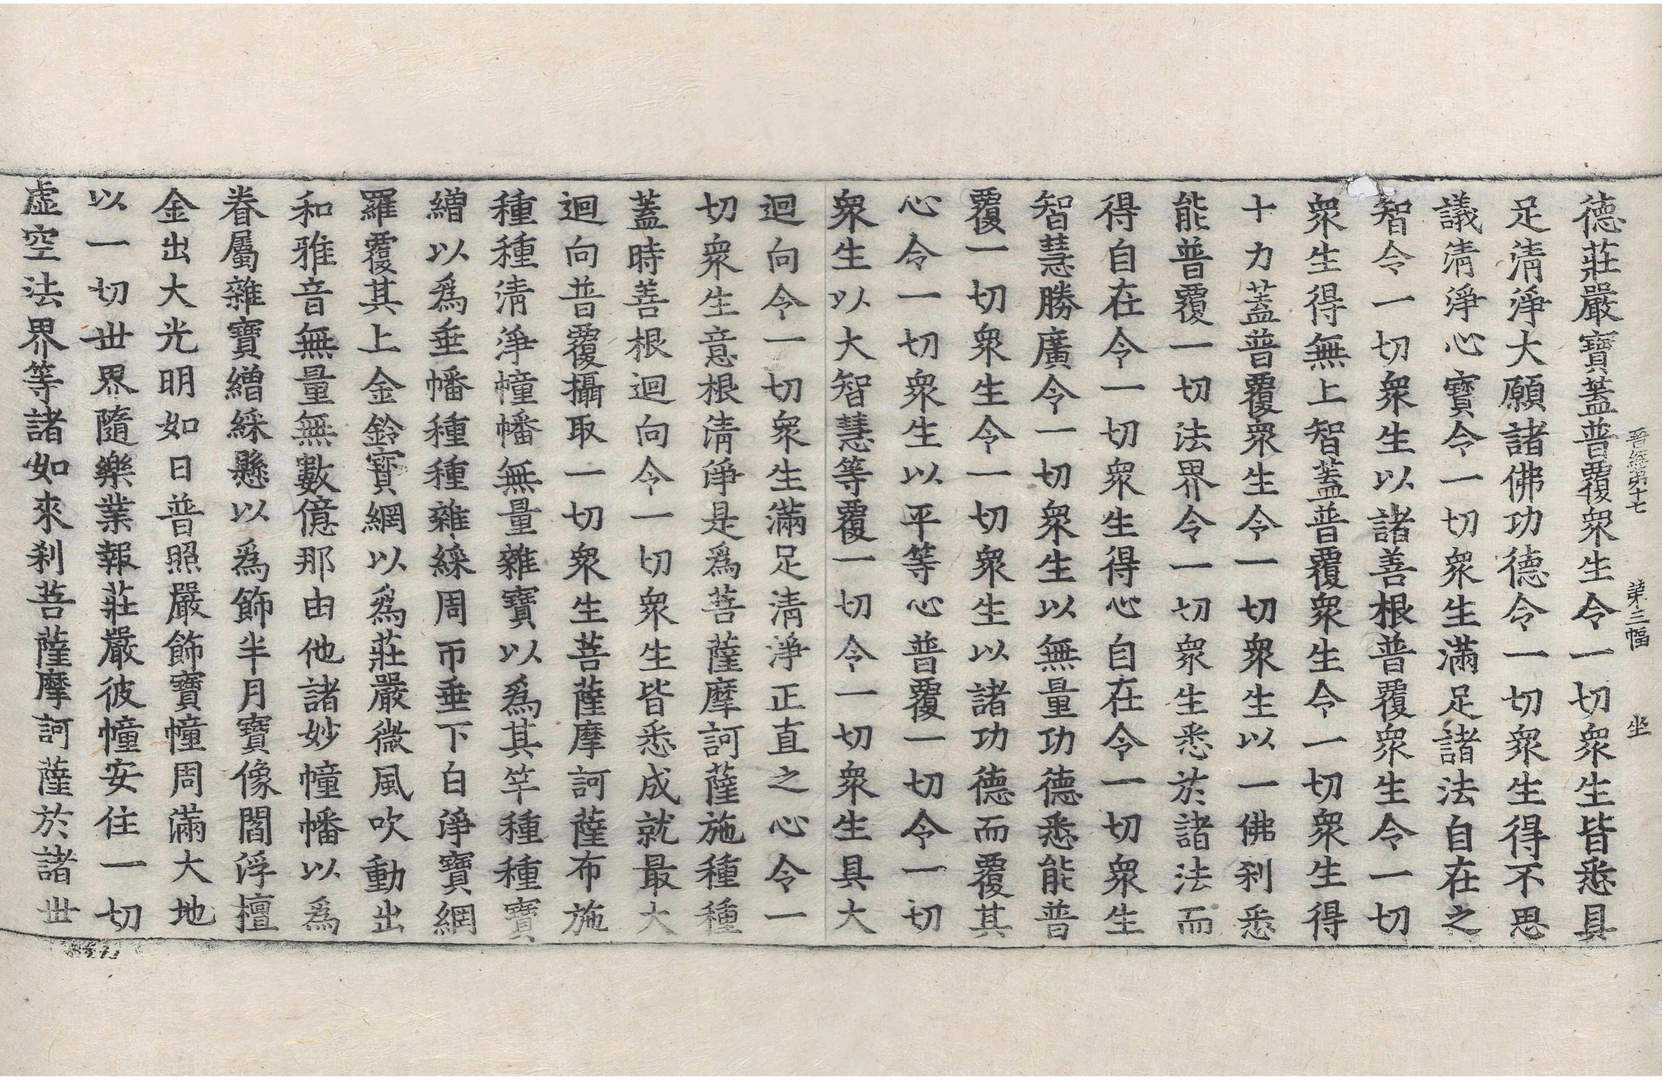 晉經第十七 第三幅 坐
德莊嚴寶蓋普覆衆生令一切衆生皆悉具
足淸淨大願諸佛功德令一切衆生得不思
議淸淨心寶令一切衆生滿足諸法自在之
智令一切衆生以諸善根普覆衆生令一切
衆生得無上智蓋普覆衆生令一切衆生得
十力蓋普覆衆生令一切衆生以一佛刹悉
能普覆一切法界令一切衆生悉於諸法而
得自在令一切衆生得心自在令一切衆生
智慧勝廣令一切衆生以無量功德悉能普
覆一切衆生令一切衆生以諸功德而覆其
心令一切衆生以平等心普覆一切令一切
衆生以大智慧等覆一切令一切衆生具大
迴向令一切衆生滿足淸淨正直之心令一
切衆生意根淸淨是爲菩薩摩訶薩施種種
蓋時善根迴向令一切衆生皆悉成就最大
迴向普覆攝取一切衆生菩薩摩訶薩布施
種種淸淨幢幡無量雜寶以爲其竿種種寶
繒以爲垂幡種種雜綵周帀垂下白淨寶網
羅覆其上金鈴寶網以爲莊嚴微風吹動出
和雅音無量無數億那由他諸妙幢幡以爲
眷屬雜寶繒綵懸以爲飾半月寶像閻浮檀
金出大光明如日普照嚴飾寶幢周滿大地
以一切世界隨樂業報莊嚴彼幢安住一切
虛空法界等諸如來刹菩薩摩訶薩於諸世